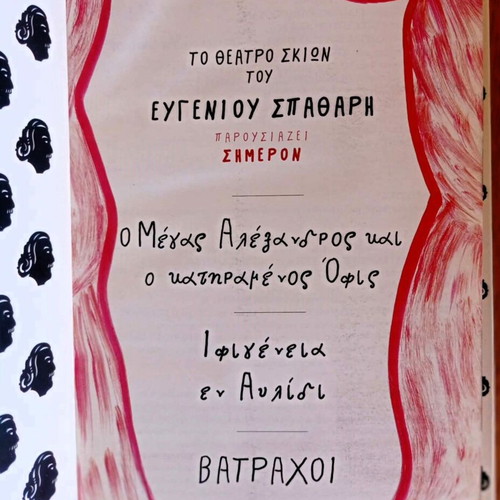 ΤΟ ΘΕΑΤΡΟ ΣΚΙΩΝ
ΤΟΥ
ΕΥΓΕΝΙΟΥ ΣΠΑΘΑΡΗ
ΠΑΡΟΥΣΙΑΖΕΙ
ΣΗΜΕΡΟΝ
Ο Μέγας Αλέξανδρος και
ο κατηραμένος Όφις
Ιφιγένεια
εν Αυλίδι
ΒΑΤΡΑΧΟΙ